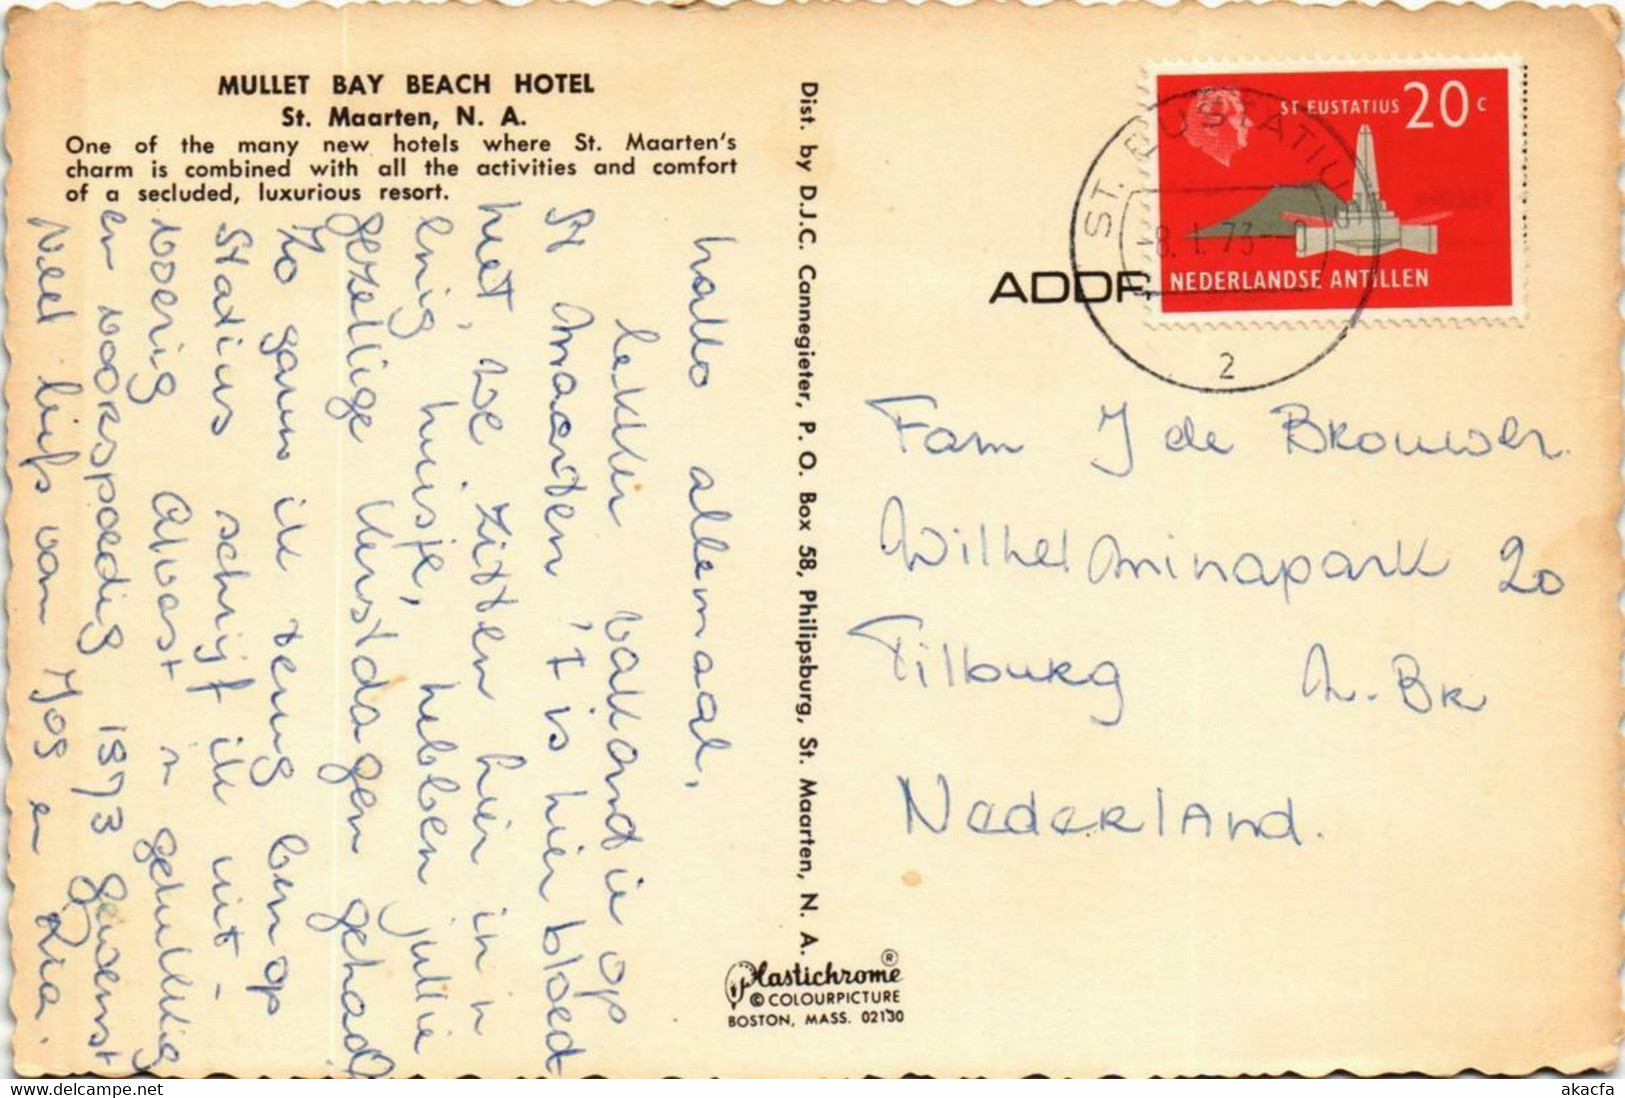 MULLET BAY BEACH HOTEL
St. Maarten, N. A.
One of the many new hotels where St. Maarten's
charm is combined with all the activities and comfort
of a secluded, luxurious resort.
hallo allemaal,
lekker vakantie op
St Maarten, 't is hier bloed-
heet, we zitten hier in 'n
enig huisje, hebben jullie
gezellige kerstdagen gehad?
Zo gauw ik terug ben op
Statius schrijf ik uit-
voerig Alvast 'n gelukkig
en voorspoedig 1973 gewenst
Veel liefs van Jos en Ria.
Dist. by D.J.C. Cannegieter, P. O. Box 58, Philipsburg, St. Maarten, N. A.
Plastichrome ®
© COLOURPICTURE
BOSTON, MASS. 02130
ST EUSTATIUS 20 c
NEDERLANDSE ANTILLEN
ST. EUSTATIUS
18.1.73
2
ADDR
Fam J de Brouwer.
Wilhelminapark 20
Tilburg N.Br
Nederland.
delcampe.net
akacfa